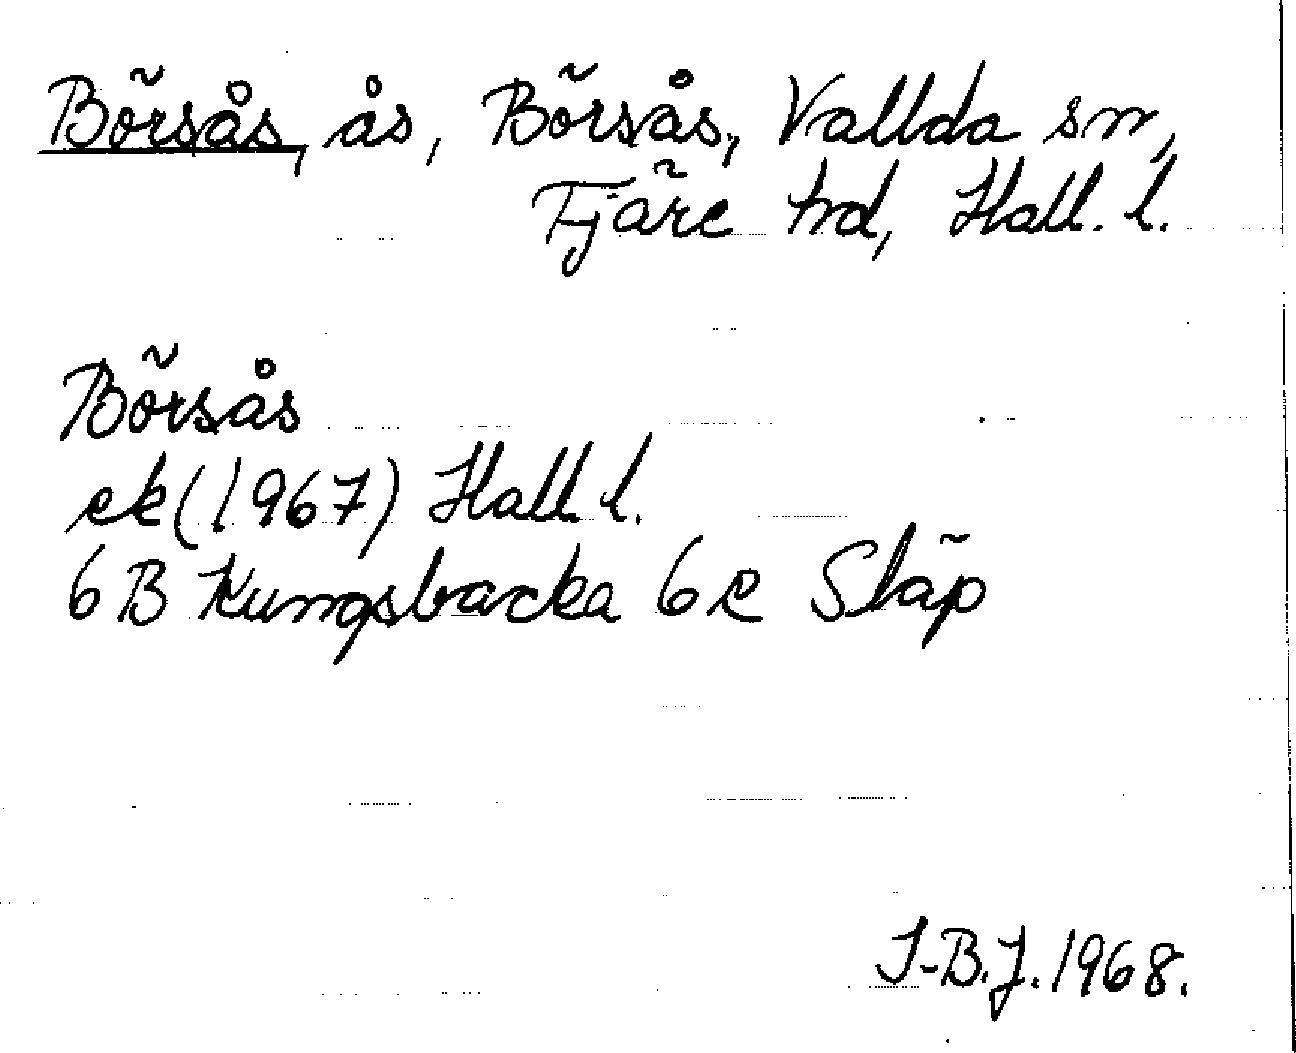 Börsås, ås, Börsås, Vallda sn,
Fjäre hd, Hall. l.
Börsås
ek (1967) Hall. l.
6B Kungsbacka 6e Släp
I-B.J. 1968.